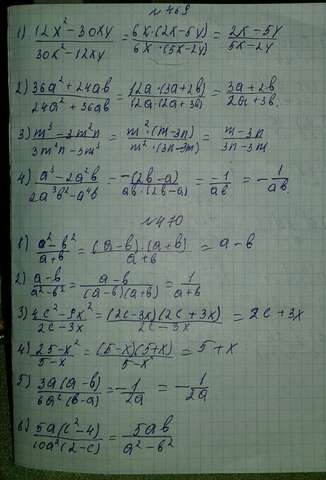 №469
1) (12x² - 30xy)/(30x² - 12xy) = (6x·(2x-5y))/(6x·(5x-2y)) = (2x-5y)/(5x-2y)
2) (36a² + 24ab)/(24a² + 36ab) = (12a·(3a+2b))/(12a(2a+3b)) = (3a+2b)/(2a+3b).
3) (m³ - 3m²n)/(3m²n - m³) = (m²·(m-3n))/(m²·(3n-m)) = (m-3n)/(3n-m)
4) (a³ - 2a²b)/(2a³b² - a⁴b) = (-(2b-a))/(ab·(2b-a)) = -1/ab = -1/ab.
№470
1) (a² - b²)/(a+b) = ((a-b)·(a+b))/(a+b) = a-b
2) (a-b)/(a²-b²) = (a-b)/((a-b)(a+b)) = 1/(a+b)
3) (4c² - 9x²)/(2c-3x) = ((2c-3x)(2c+3x))/(2c-3x) = 2c+3x
4) (25-x²)/(5-x) = ((5-x)(5+x))/(5-x) = 5+x
5) (3a(a-b))/(6a²(b-a)) = -1/2a = -1/2a
6) (5a(c²-4))/(10a²(2-c)) = 5ab/(a²-b²)